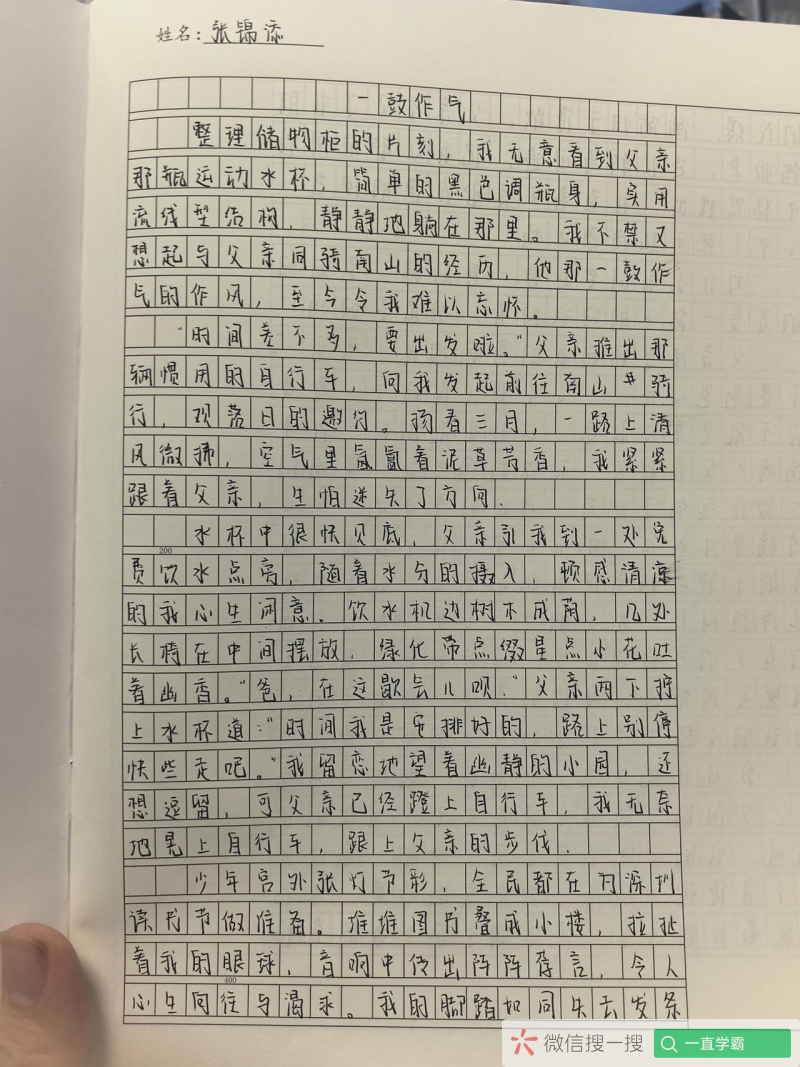 姓名：张锦添
一鼓作气
整理储物柜的片刻，我无意看到父亲
那瓶运动水杯，简单的黑色调瓶身，实用
流线型结构，静静地躺在那里。我不禁又
想起与父亲同骑南山的经历，他那一鼓作
气的作风，至今令我难以忘怀。
“时间差不多，要出发啦。”父亲推出那
辆惯用的自行车，向我发起前往南山骑
行，观落日的邀约。顶着三月，一路上清
风微拂，空气里氤氲着泥草芳香，我紧紧
跟着父亲，生怕迷失了方向.
水杯中很快见底，父亲引我到一处免
费饮水点离，随着水分的摄入，顿感清凉
的我心生闲意。饮水机边树木成荫，几处
长椅在中间摆放，绿化带点缀星点小花吐
着幽香。“爸，在这歇会儿呗.”父亲两下拧
上水杯道：“时间我是安排好的，路上别停
快些走吧。”我留恋地望着幽静的小园，还
想逗留，可父亲已经蹬上自行车，我无奈
地晃上自行车，跟上父亲的步伐.
少年宫外张灯节彩，全民都在为深圳
读书节做准备。堆堆图书叠成小楼，拉扯
着我的眼球，音响中传出阵阵荐言，令人
心生向往与渴求。我的脚踏如同失去发条
200
400
微信搜一搜
一直学霸